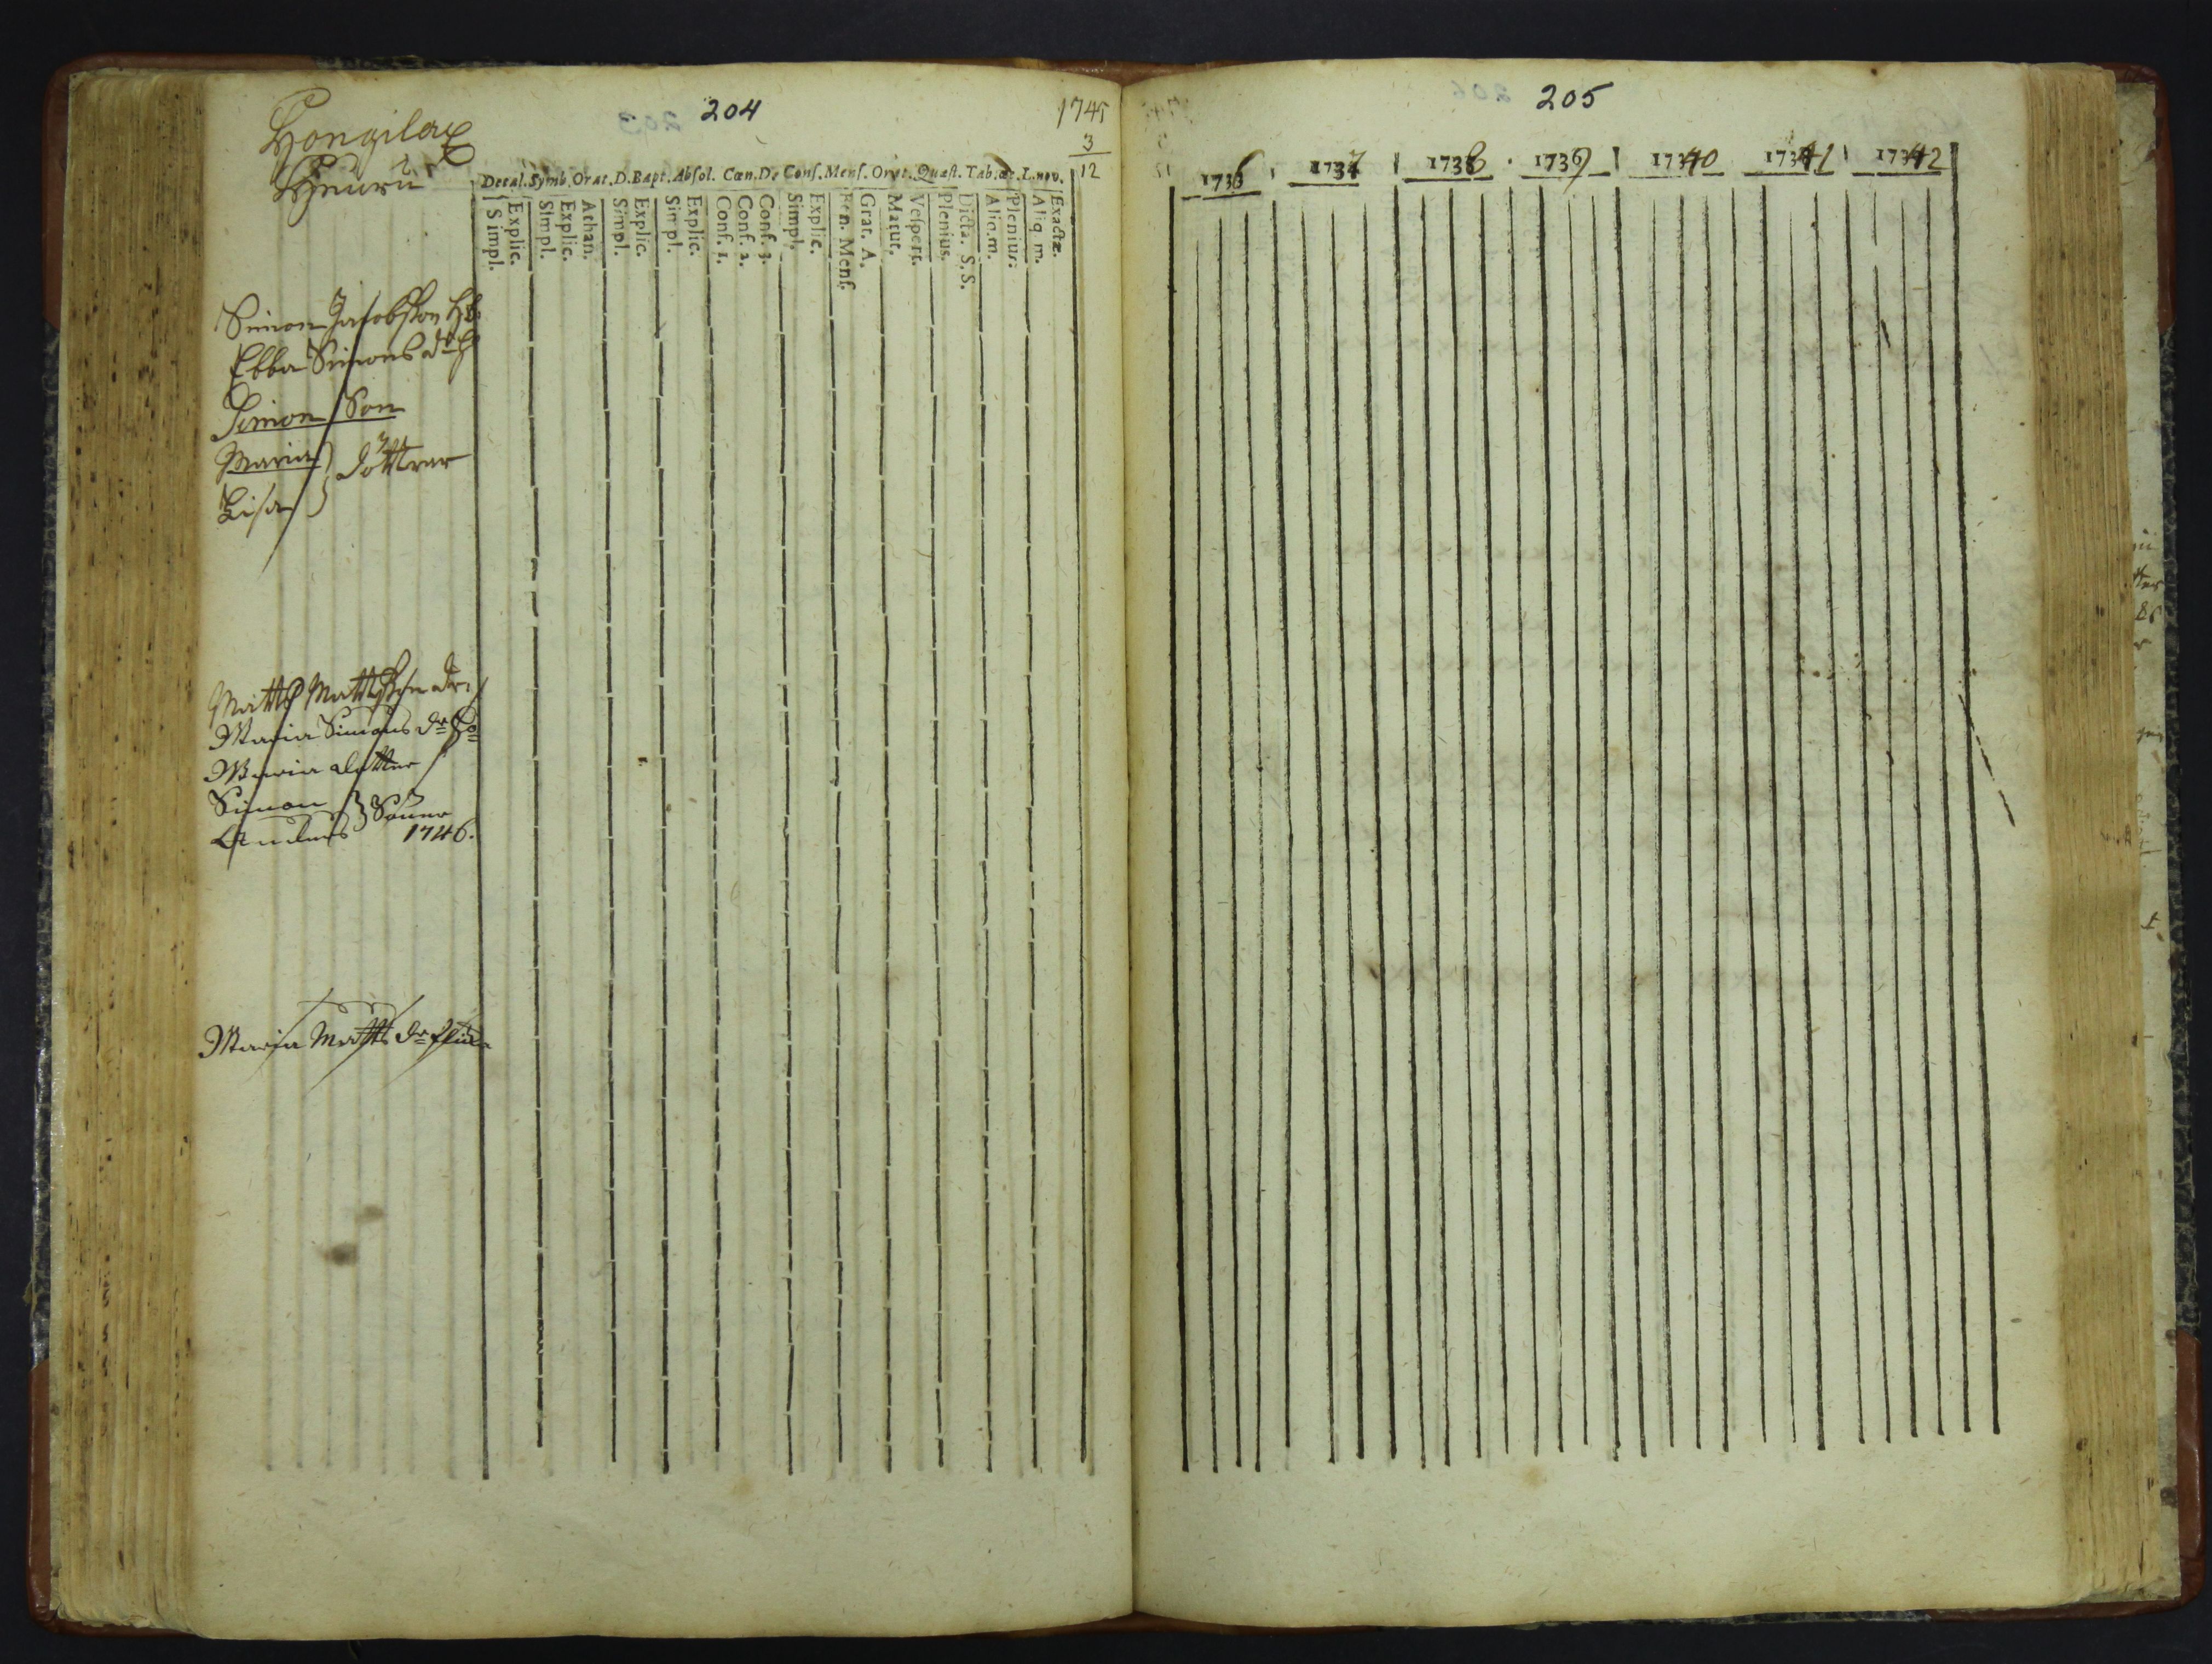 204
1745
3
12
Hongilax
Decal. Symb. Orat. D. Bapt. Abſol. Cœn. De Conf. Menſ. Orat. Quæſt. Tab. œc. L. nov.
Simpl.
Explic.
Simpl.
Explic.
Athan.
Simpl.
Explic.
Simpl.
Explic.
Conf. 1.
Conf. 2.
Conf. 3.
Simpl.
Explic.
Ben. Menſ.
Grat. A.
Matut.
Veſpert.
Plenius.
Dicta. S. S.
Aliq. m.
Plenius.
Aliq. m.
Exactæ.
Simon Jacobsson
Ebba Simons dr
Simon Son
Maria
Lisa } döttrar
Matts Mattsson
Maria Simons dr
Maria dotter
Simon
Anders } Söner
1746.
Maria Matts dr
205
1736 1737 1738 1739 1740 1741 1742